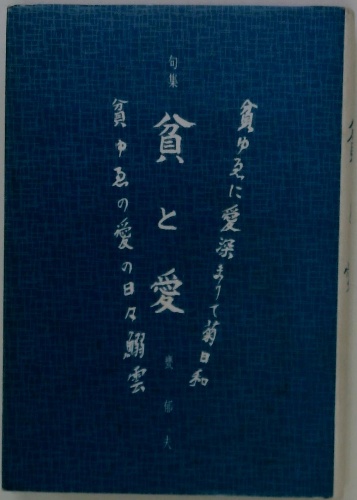 貧ゆゑに愛深まりて菊日和
句集
貧と愛
郁夫
貧ゆゑの愛の日々鰯雲